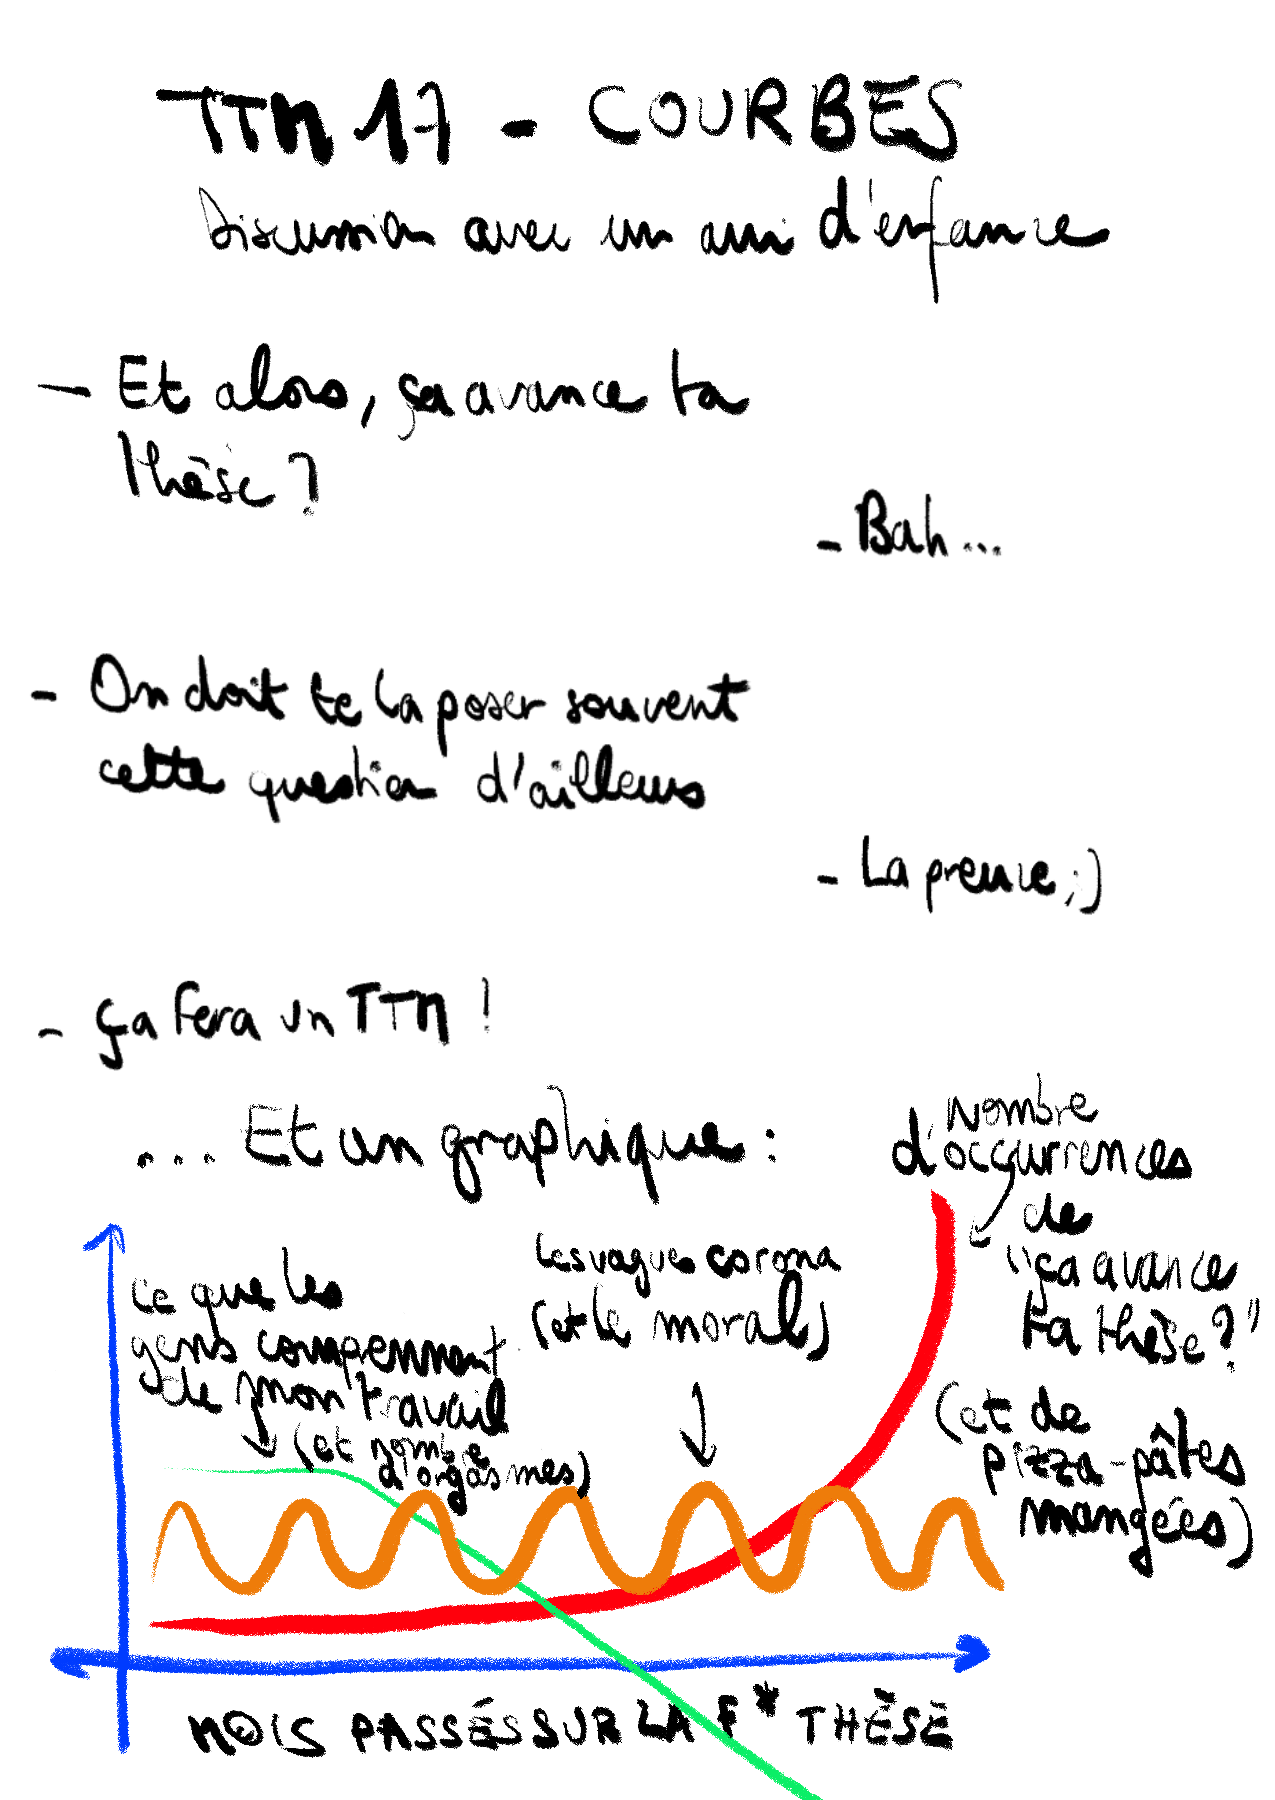 TTN 17 - COURBES
Discussion avec un ami d'enfance
- Et alors, ça avance ta
thèse ?
- Bah...
- On doit te la poser souvent
cette question d'ailleurs
- La preuve ;)
- ça fera un TTN !
... Et un graphique :
Nombre
d'occurrences
de
"ça avance
ta thèse ?"
(et de
pizza-pâtes
mangées)
Les vagues corona
(et le moral)
Ce que les
gens comprennent
de mon travail
(et nombre
d'orgasmes)
MOIS PASSÉS SUR LA F* THÈSE